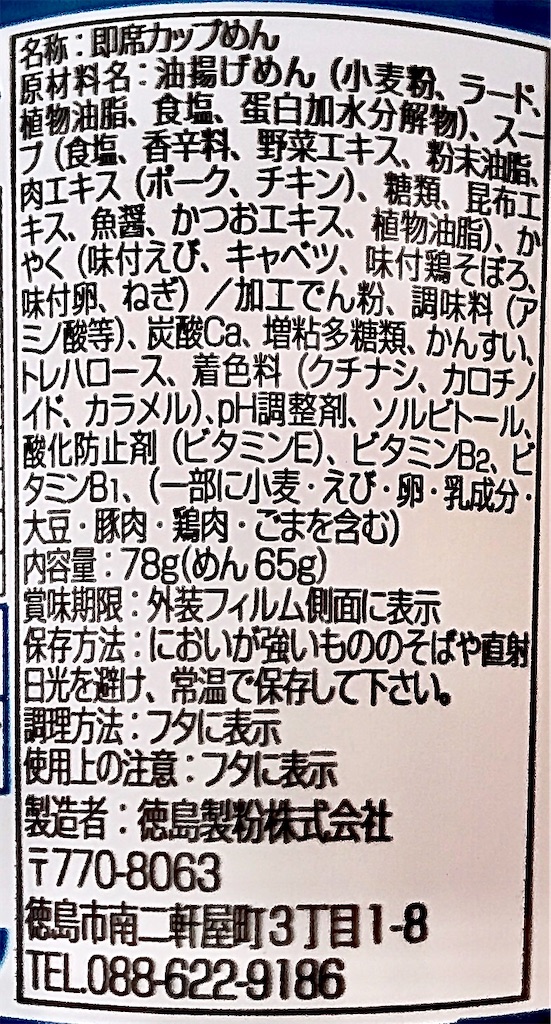 名称：即席カップめん
原材料名：油揚げめん（小麦粉、ラード、
植物油脂、食塩、蛋白加水分解物）、スー
プ（食塩、香辛料、野菜エキス、粉末油脂、
肉エキス（ポーク、チキン）、糖類、昆布エ
キス、魚醤、かつおエキス、植物油脂）、か
やく（味付えび、キャベツ、味付鶏そぼろ、
味付卵、ねぎ）／加工でん粉、調味料（ア
ミノ酸等）、炭酸Ca、増粘多糖類、かんすい、
トレハロース、着色料（クチナシ、カロチノ
イド、カラメル）、pH調整剤、ソルビトール、
酸化防止剤（ビタミンE）、ビタミンB2、ビ
タミンB1、（一部に小麦・えび・卵・乳成分・
大豆・豚肉・鶏肉・ごまを含む）
内容量：78g(めん65g)
賞味期限：外装フィルム側面に表示
保存方法：においが強いもののそばや直射
日光を避け、常温で保存して下さい。
調理方法：フタに表示
使用上の注意：フタに表示
製造者：徳島製粉株式会社
〒770-8063
徳島市南二軒屋町3丁目1-8
TEL.088-622-9186